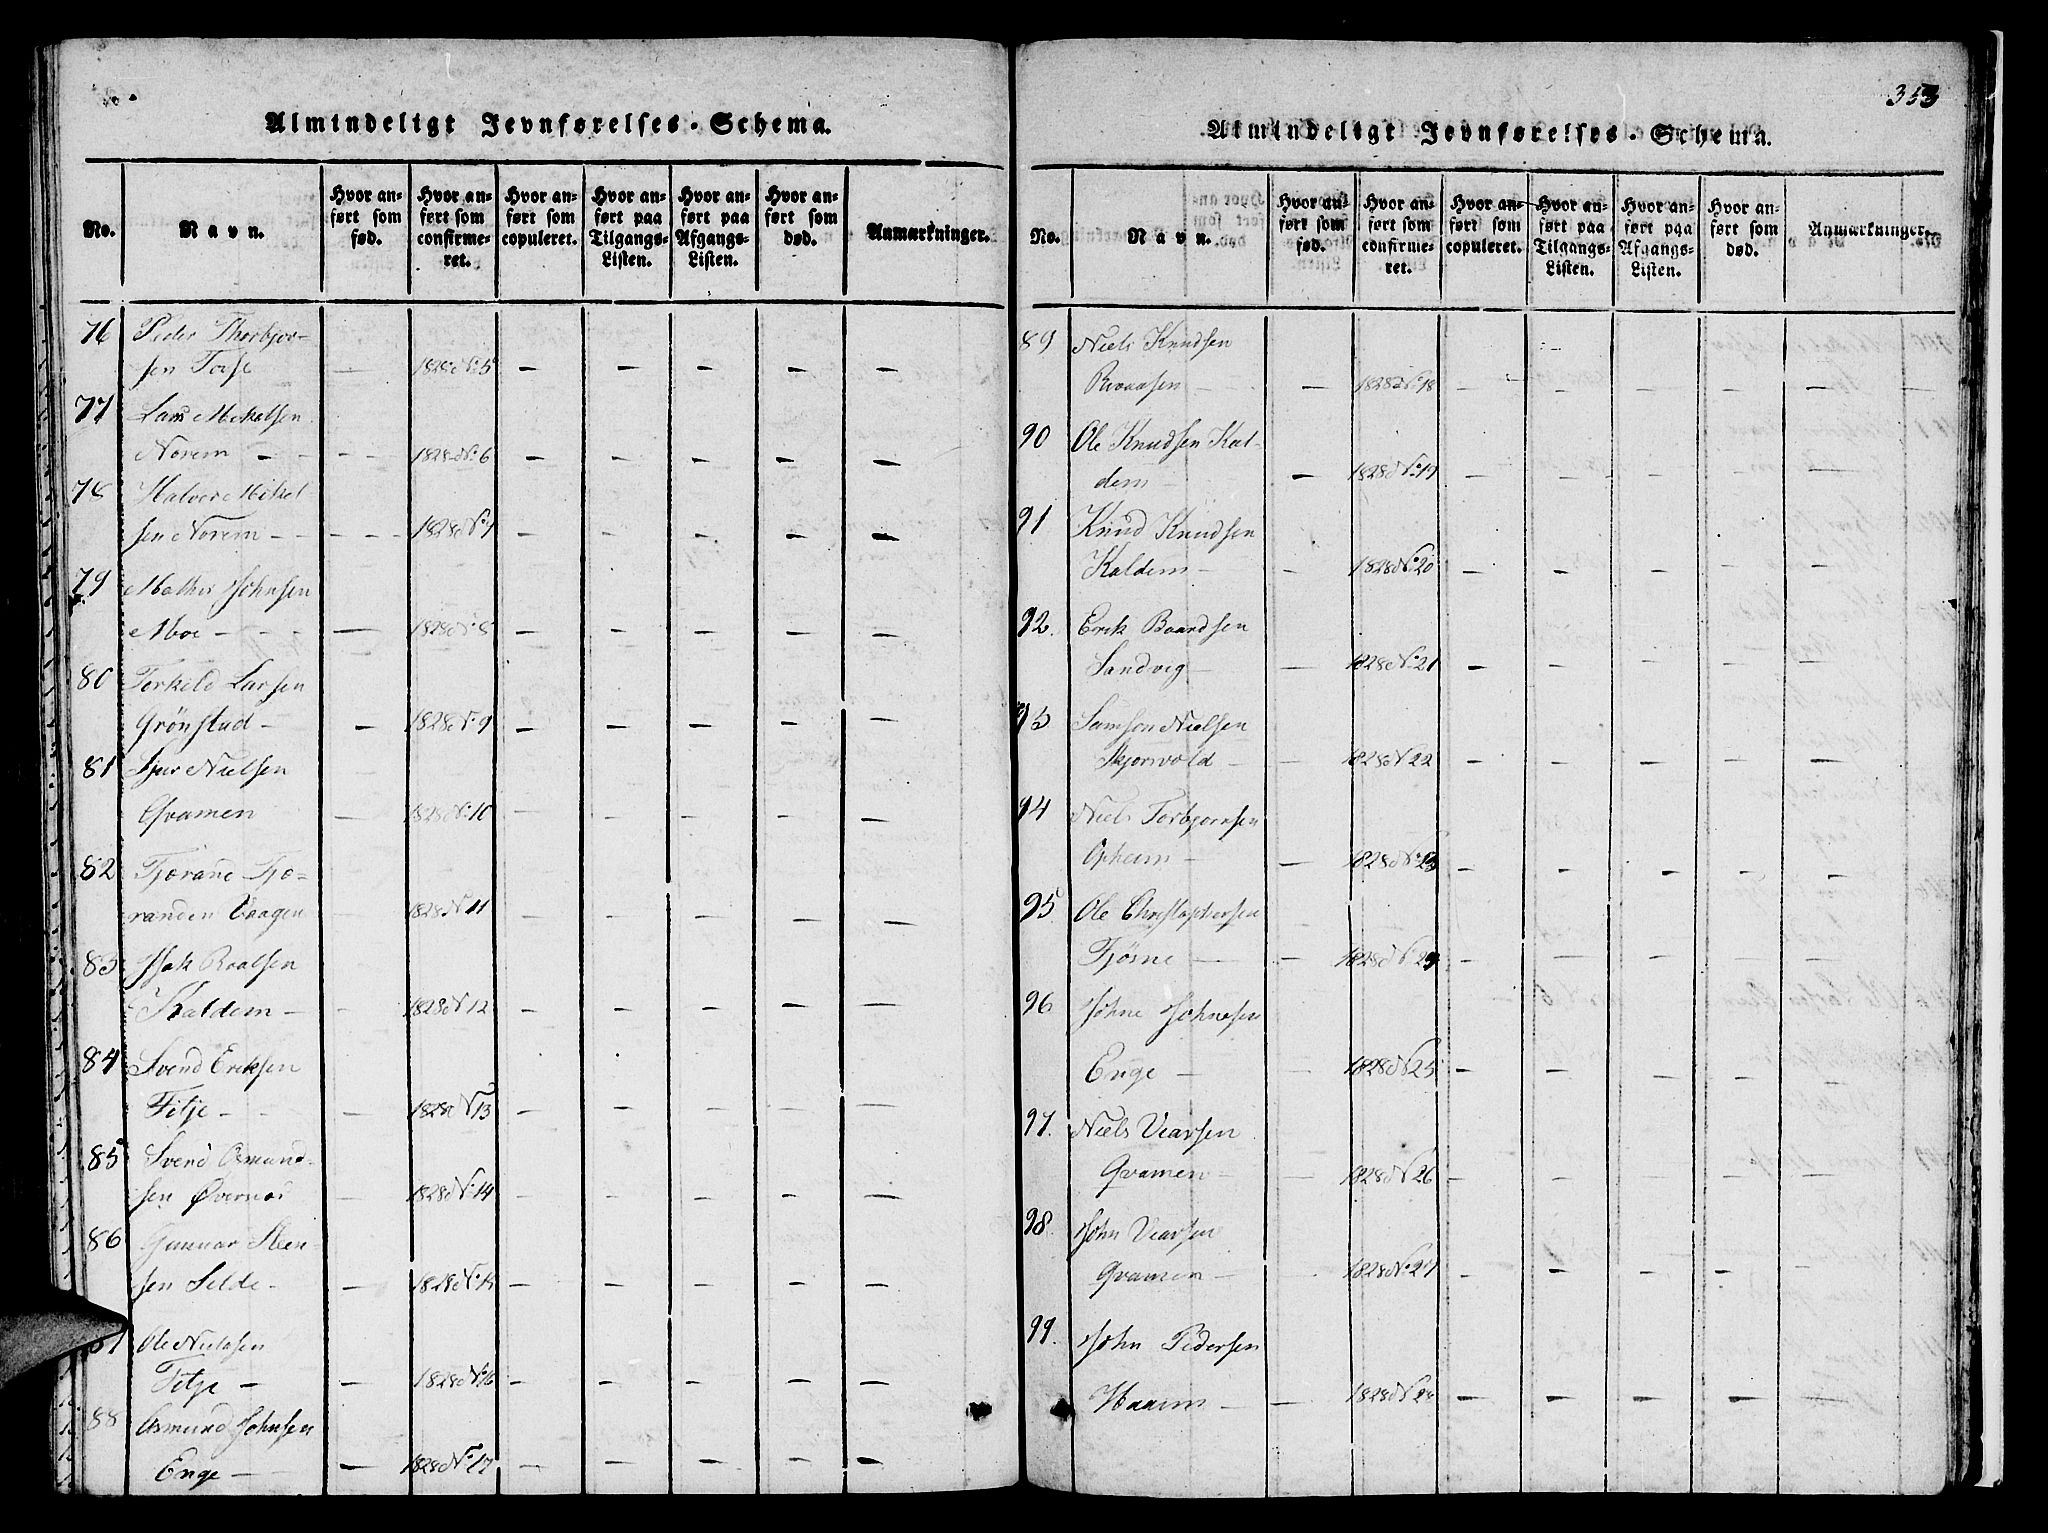 Almindeligt Jevnførelses-Schema.
No.
Navn.
Hvor an-
ført som
fød.
Hvor an-
ført som
confirme-
ret.
Hvor an-
ført som
copuleret.
Hvor an-
ført paa
Tilgangs-
Listen.
Hvor an-
ført paa
Afgangs-
Listen.
Hvor an-
ført som
død.
Anmærkninger.
76 Peder Thorbjor-
sen Torse — 1828 No. 5 — — — — —
77 Lars Mikelsen
Norem — — 1828 No. 6 — — — — —
78 Halvor Mikel
sen Norem — — 1828 No. 7 — — — — —
79 Mathis Johnsen
Moe — — 1828 No. 8 — — — — —
80 Torkild Larsen
Grönstad — — 1828 No. 9 — — — — —
81 Sjur Nielsen
Qvamen — 1828 No. 10 — — — — —
82 Tjerand Tje-
randsen Vaagen — 1828 No. 11 — — — — —
83 Isak Roalsen
Kaldem — — 1828 No. 12 — — — — —
84 Svend Eriksen
Fitje — — 1828 No. 13 — — — — —
85 Svend Osmund-
sen Øvernæs — 1828 No. 14 — — — — —
86 Gunnar Steen-
sen Selde — — 1828 No. 15 — — — — —
87 Ole Nielssen
Fitje — — 1828 No. 16 — — — — —
88 Osmund Johnsen
Enge — — 1828 No. 17 — — — — —
353
Almindeligt Jevnførelses-Schema.
No.
Navn.
Hvor an-
ført som
fød.
Hvor an-
ført som
confirme-
ret.
Hvor an-
ført som
copuleret.
Hvor an-
ført paa
Tilgangs-
Listen.
Hvor an-
ført paa
Afgangs-
Listen.
Hvor an-
ført som
død.
Anmærkninger.
89 Niels Knudsen
— — 1828 No. 18 — — — — —
90 Ole Knudsen Kal-
dem — — 1828 No. 19 — — — — —
91 Knud Knudsen
Kaldem — — 1828 No. 20 — — — — —
92. Erik Baardsen
Sandvig — — 1828 No. 21 — — — — —
93 Samson Nielsen
Skjorvold — — 1828 No. 22 — — — — —
94 Niels Torbjornsen
Opheim — — 1828 No. 23 — — — — —
95 Ole Christophersen
Tjösne — — 1828 No. 24 — — — — —
96 Johne Johnesen
Enge — 1828 No. 25 — — — — —
97. Niels Viarsen
Qvamen — — 1828 No. 26 — — — — —
98. John Viarsen
Qvamen — — 1828 No. 27 — — — — —
99. John Pedersen
Haaim — — 1828 No. 28 — — — — —